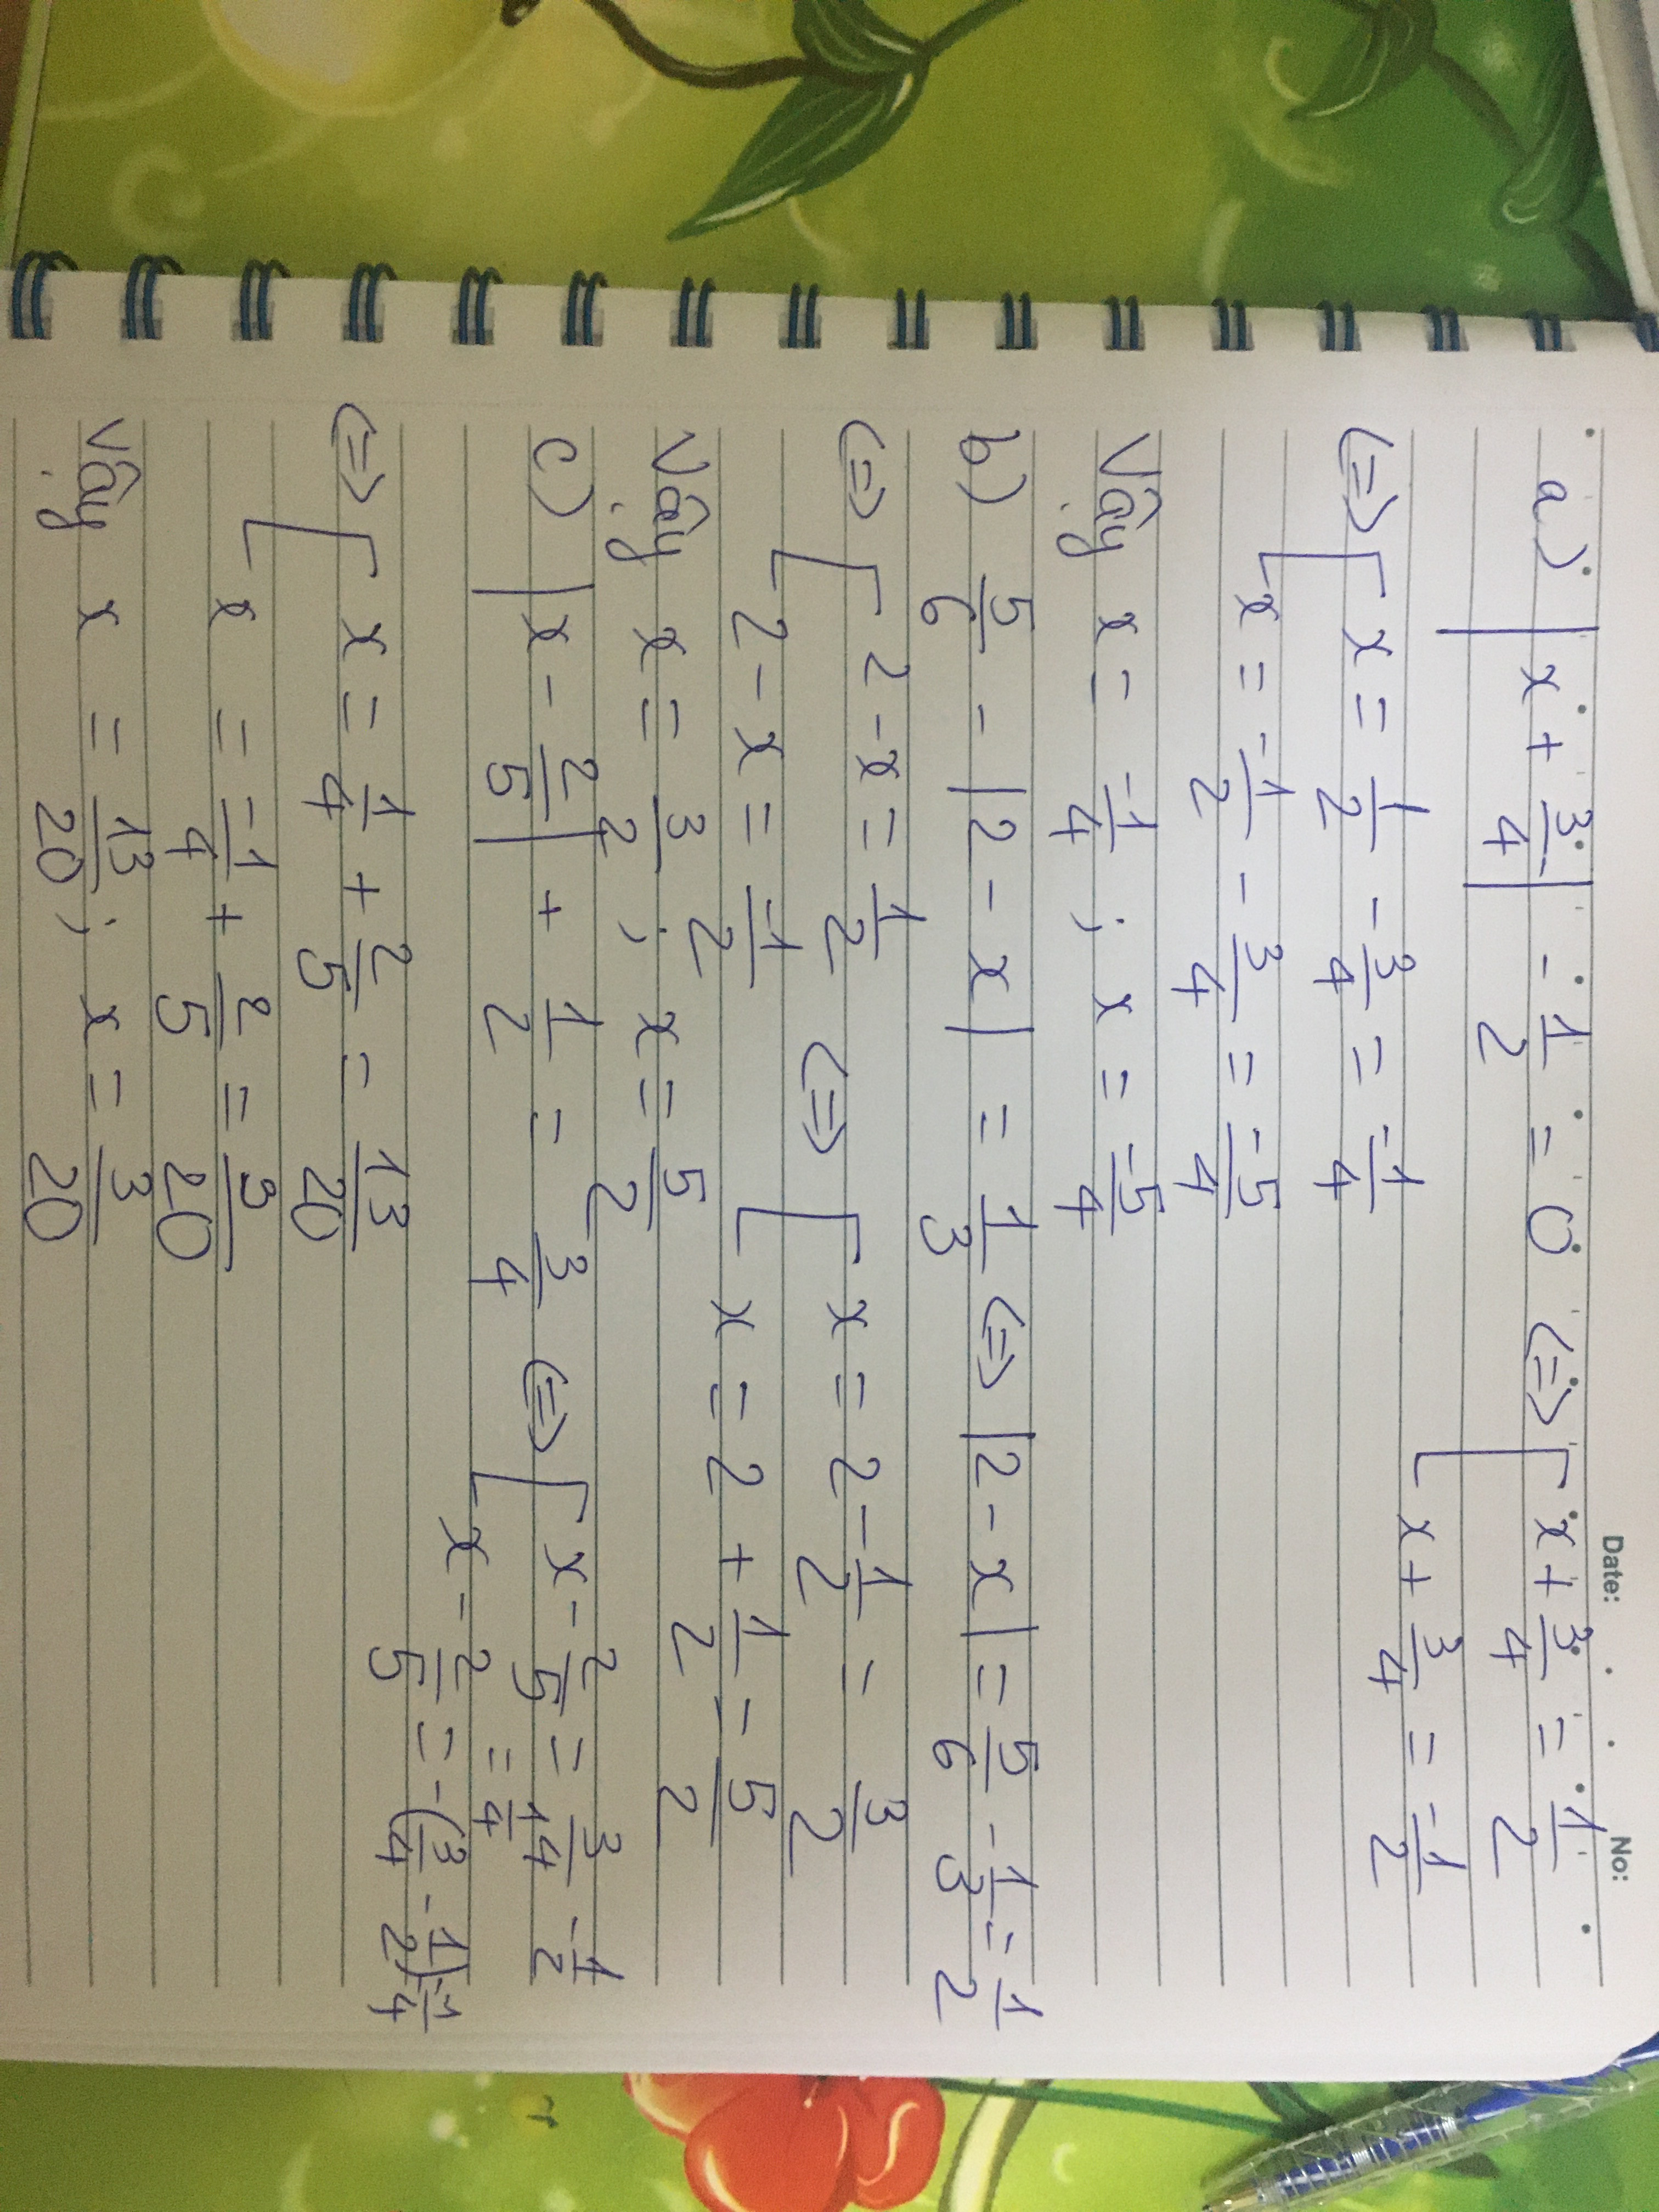 Date: No:
a) |x + 3/4| - 1/2 = 0 <=> [ x + 3/4 = 1/2
x + 3/4 = -1/2
<=> [ x = 1/2 - 3/4 = -1/4
x = -1/2 - 3/4 = -5/4
Vậy x = -1/4 ; x = -5/4
b) 5/6 - |2 - x| = 1/3 <=> |2 - x| = 5/6 - 1/3 = 1/2
<=> [ 2 - x = 1/2 <=> [ x = 2 - 1/2 = 3/2
2 - x = -1/2 x = 2 + 1/2 = 5/2
Vậy x = 3/2 ; x = 5/2
c) |x - 2/5| + 1/2 = 3/4 <=> [ x - 2/5 = 3/4 - 1/2
= 1/4
x - 2/5 = -(3/4 - 1/2) = -1/4
<=> [ x = 1/4 + 2/5 = 13/20
x = -1/4 + 2/5 = 3/20
Vậy x = 13/20 ; x = 3/20